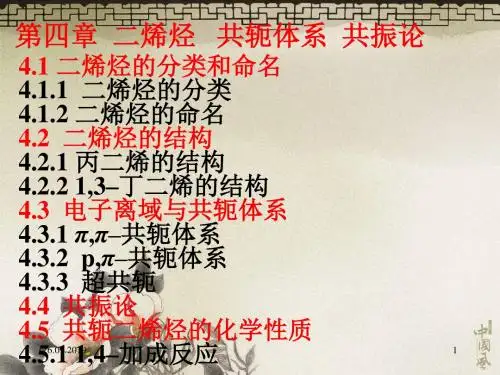 第四章 二烯烃 共轭体系 共振论
4.1 二烯烃的分类和命名
4.1.1 二烯烃的分类
4.1.2 二烯烃的命名
4.2 二烯烃的结构
4.2.1 丙二烯的结构
4.2.2 1,3–丁二烯的结构
4.3 电子离域与共轭体系
4.3.1 π,π–共轭体系
4.3.2 p,π–共轭体系
4.3.3 超共轭
4.4 共振论
4.5 共轭二烯烃的化学性质
4.5.1 1,4–加成反应
1
中国風